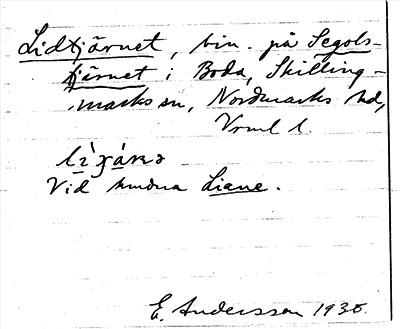 Lidtjärnet, bin. på Segols-
tjärnet i Boda, Skilling-
marks sn, Nordmarks hd,
Vrml l.
Vid kmdna Liane.
E. Andersson 1935.